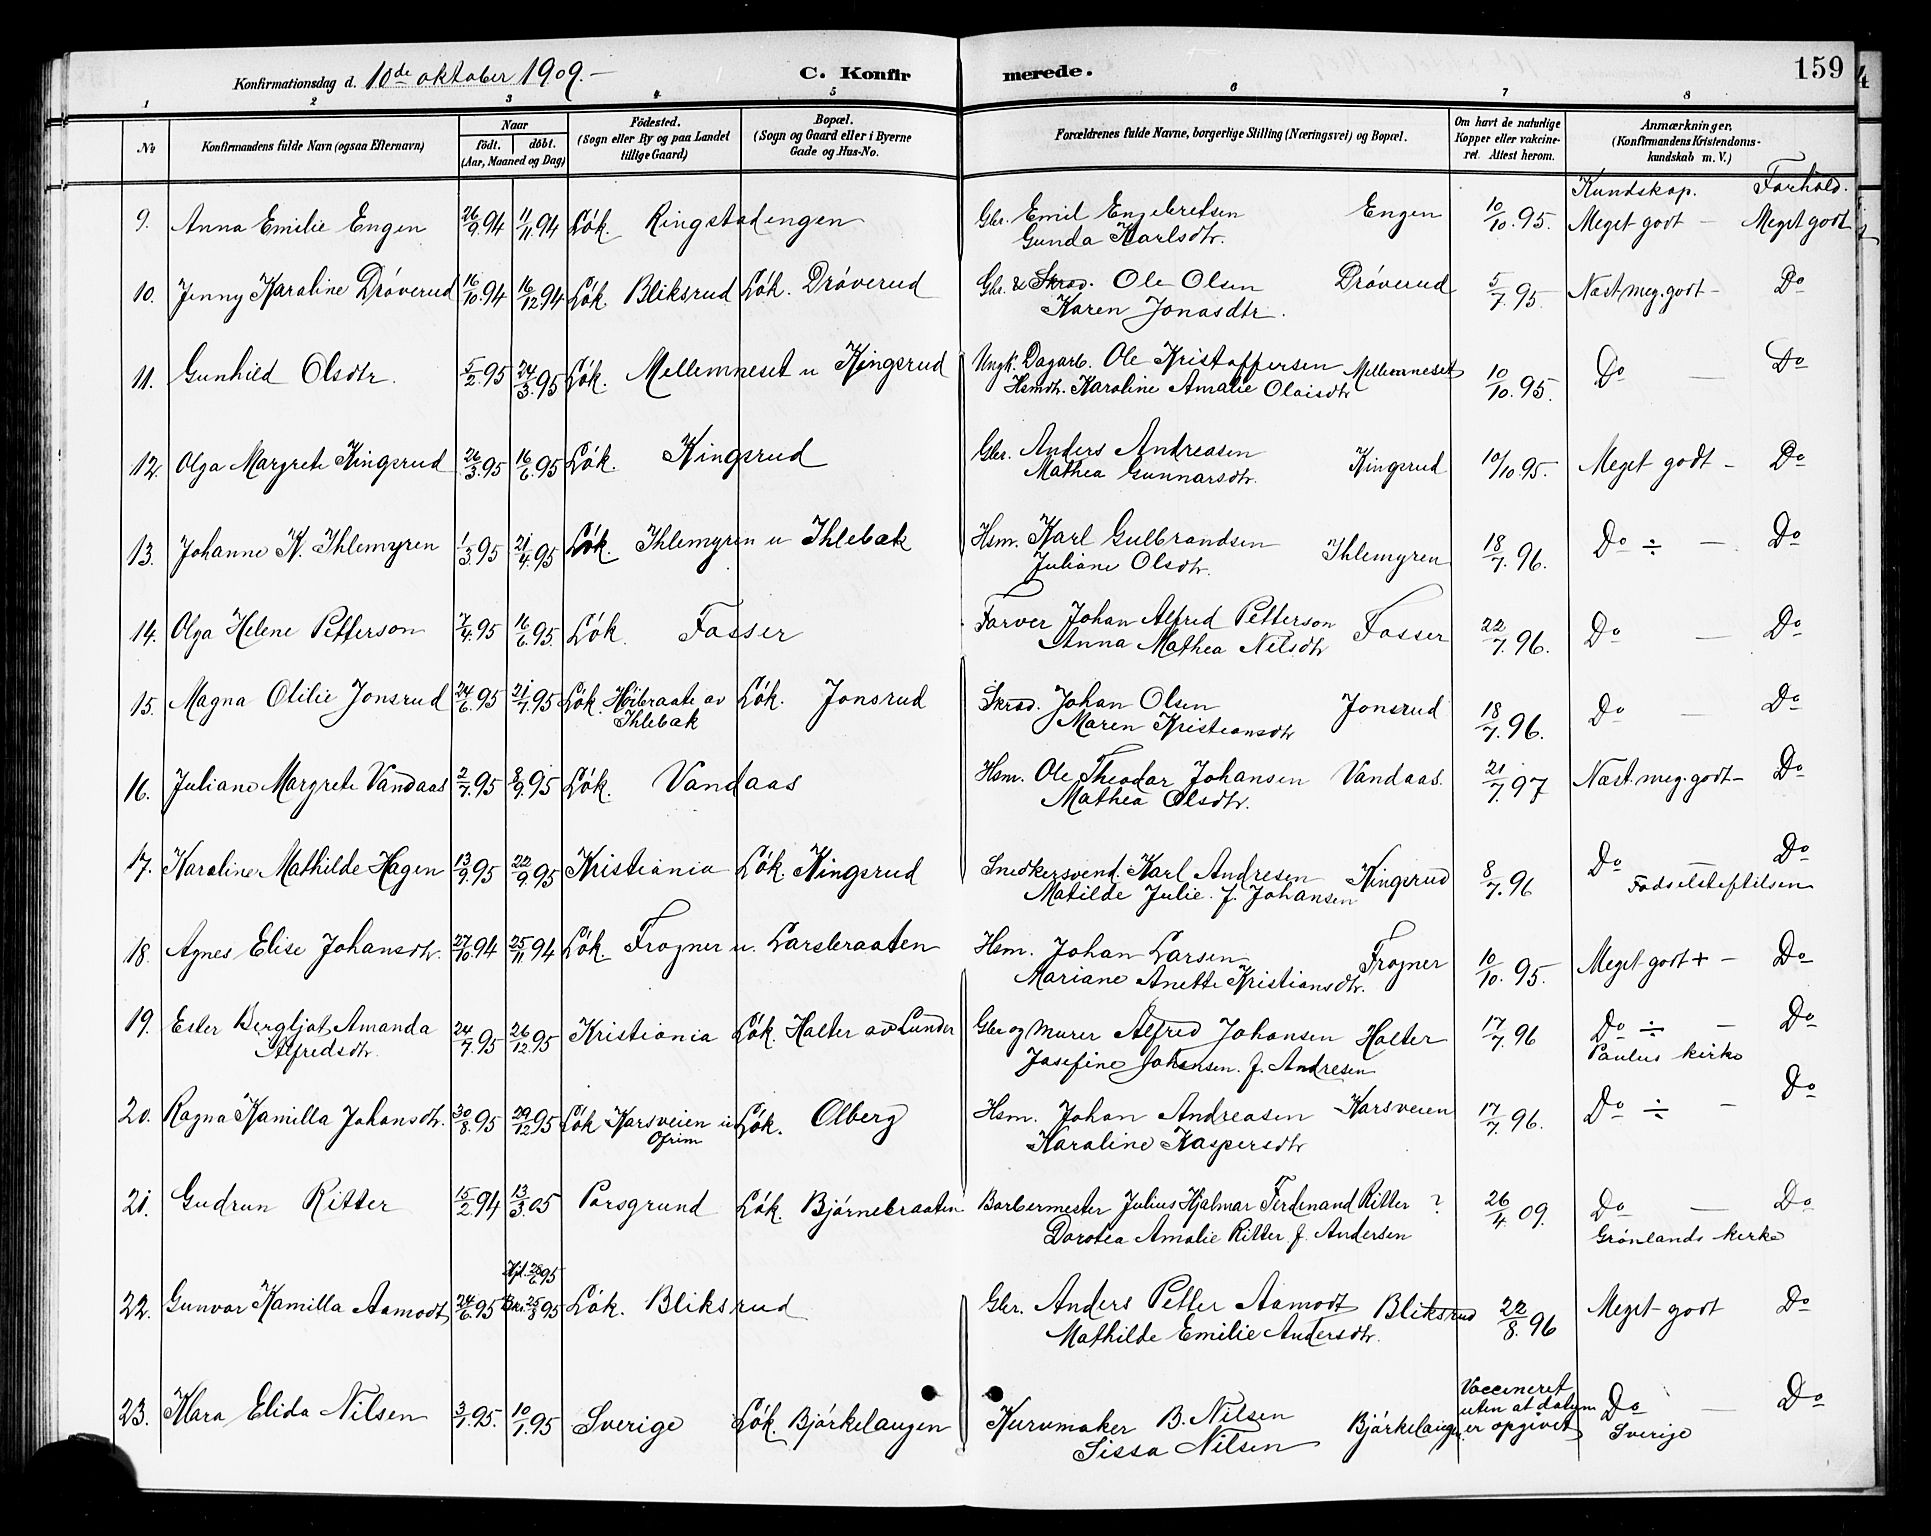 Konfirmationsdag d. 10de oktober 1909. –
C. Konfirmerede.
159
1 2 3 4 5 6 7 8
No
Konfirmandens fulde Navn (ogsaa Efternavn)
Naar
født. døbt.
(Aar, Maaned og Dag)
Fødested.
(Sogn eller By og paa Landet
tillige Gaard)
Bopæl.
(Sogn og Gaard eller i Byerne
Gade og Hus-No.
Forældrenes fulde Navne, borgerlige Stilling (Næringsvei) og Bopæl.
Om havt de naturlige
Kopper eller vakcine-
ret. Attest herom.
Anmærkninger.
(Konfirmandens Kristendoms-
kundskab m. V.)
Kundskap. Forhold.
9. Anna Emilie Engen 26/9.94 11/11.94 Løk. Ringstadengen Gbr. Emil Engebretsen Engen 10/10.95. Meget godt – Meget godt
Gunda Karlsdtr.
10. Jenny Karoline Drøverud 16/10.94 16/12 94 Løk. Bliksrud Løk. Drøverud Gbr. & Skræd. Ole Olsen Drøverud 5/7.95. Næst meg. godt – Do
Karen Jonasdtr.
11. Gunhild Olsdtr. 5/2.95 24/3.95 Løk. Mellemneset u Kingsrud Ungk. Dagarb. Ole Kristoffersen Mellemneset 10/10.95. Do – Do
Hsmdtr. Karoline Amalie Olaisdtr
12. Olga Margrete Kingsrud 26/3.95 16/6.95 Løk. Kingsrud Gbr. Anders Andreasen Kingsrud 10/10.95. Meget godt – Do
Mathea Gunnarsdtr.
13. Johanne K. Ihlemyren 1/3.95 21/4.95 Løk. Ihlemyren u Ihlebæk Hsm. Karl Gulbrandsen Ihlemyren 18/7.96. Do ÷ – Do
Juliane Olsdtr.
14. Olga Helene Petterson 7/4.95 16/6.95. Løk. Fosser Farver Johan Alfred Petterson Fosser 22/7.96. Do – Do
Anna Mathea Nilsdtr
15. Magna Otilie Jonsrud 24/6.95 21/7.95 Løk. Høibraate av Løk. Jonsrud Skræd. Johan Olsen Jonsrud 18/7.96. Do – Do
Ihlebæk Maren Kristiansdtr
16. Juliane Margrete Vandaas 2/7.95 8/9.95 Løk. Vandaas Hsm. Ole Theodor Johansen Vandaas. 21/7.97 Næst. meg. godt – Do
Mathea Olsdtr.
17. Karoline Mathilde Hagen 13/9.95 22/9.95 Kristiania Løk. Kingsrud Snedkersvend. Karl Andresen Kingsrud 8/7.96 Do – Do
Matilde Julie. f. Johansen
18. Agnes Elise Johansdtr. 27/10.94 25/11 94 Løk. Frogner u. Larsbraaten Hsm. Johan Larsen Frogner 10/10.95. Meget godt + – Do
Mariane Anette Kristiansdtr.
19. Ester Bergljot Amanda 24/7.95 26/12 95 Kristiania Løk. Holter av Lunder Gbr og Murer Alfred Johansen Holter 17/7.96 Do ÷ – Do
Alfredsdtr. Josefine Johansen. f. Andresen Paulus kirke
20. Ragna Kamilla Johansdtr. 30/8.95 29/12 95 Løk Karsveien u Løk. Olberg Hsm. Johan Andreasen Karsveien 17/7.96. Do ÷ – Do
Ofrim Karoline Kaspersdtr
21. Gudrun Ritter 15/2.94 13/3.05 Porsgrund Løk. Bjørnebraaten Barbermester Julius Hjalmar Ferdenand Ritter ? 26/4.09. Do – Do
Dorotea Amalie Ritter f. Andersen Grønlands kirke
22. Gunvor Kamilla Aamodt 24/6.95 Hjd. 28/6 95 Løk. Bliksrud Gbr. Anders Petter Aamodt Bliksrud 22/8.96 Meget godt Do
25/8 95 Mathilde Emilie Andersdtr.
23. Klara Elida Nilsen 3/1.95. 10/1.95 Sverige Løk. Bjørkelangen Kurvmaker B. Nilsen Bjørkelangen Vaccineret Do – Do
Sissa Nilsen uten at datum
er opgivet Sverige